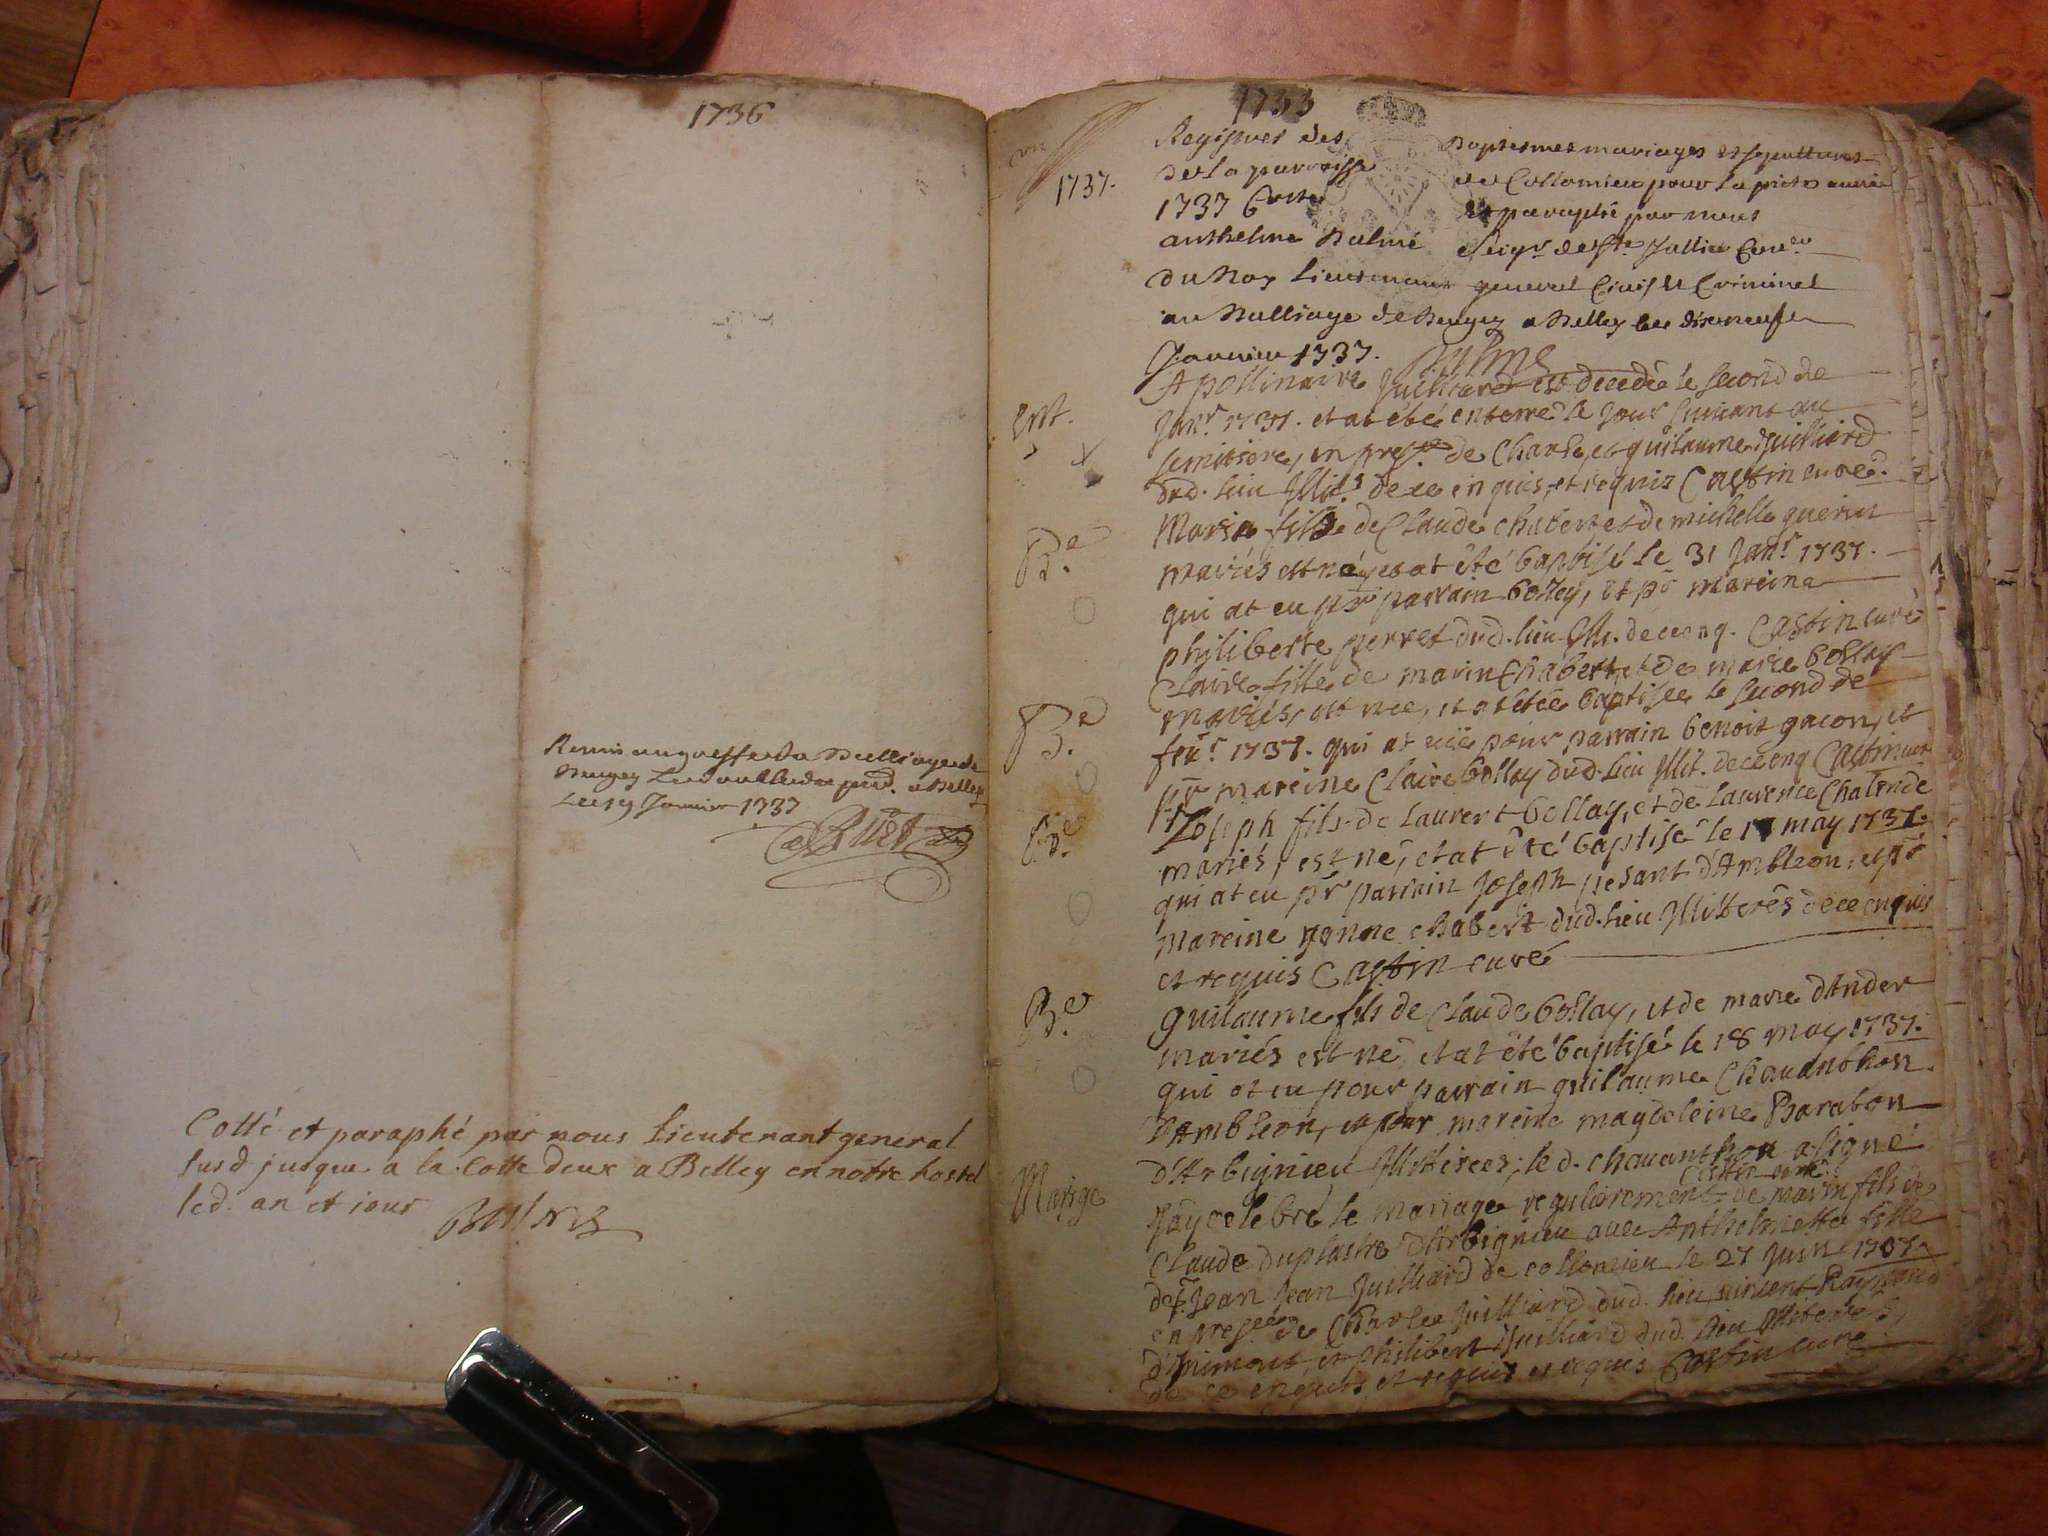 1736
Remis au greffe du Bailliage de
Bugey
Le 19 Janvier 1737
Cotté et paraphé par nous Lieutenant general
susd jusque a la Cotte deux a Belley en notre hostel
led. an et jour
Balme
1733
1737.
Registres des Baptesmes mariages et sepultures
de la parroisse de Collomieu pour la pnte année
1737 Cotté et paraphé par nous
anthelme Balme Seigr. de Ste. Jullie Coner.
du Roy Lieutenant general Civil et Criminel
au Bailliage de Beugey a Belley ce dixneufe
Janvier 1737. Balme
Ent.
Apollinaire Juilliard est decedé le second de
Janr. 1737. et at été enterré le jour suivant au
semitiere, en presce de Charle, et guilaume Juilliard
dud. lieu Illit.s de ce enquis, et requis Castin curé.
B.e
Marie fille de Claude chabert et de michelle guerin
mariés est né, et at été baptisé le 31 Janr. 1737.
qui at eu pr parrain bolley, et pr mareine
philiberte perret dud. lieu Illi. de ce enq. Castin curé
B.e
Claire fille de marin Chabert, et de marie bollay
mariés, est nee, et at étée baptisee le second de
feur. 1737. qui at eüe pour parrain benoit gacon, et
pr mareine Claire bollay dud. lieu Illit. de ce enq Castin curé
B.e
Joseph fils de laurent bollay, et de laurence Chalende
mariés, est né, et at été baptisé le 17 may 1737.
qui at eu pr parrain Joseph pesant d'Ambleon, et pr
mareine yonne chabert dud. lieu Illitterés de ce enquis
et requis Castin curé
B.e
guilaume fils de Claude bollay, et de marie d'Ander
mariés est né, et at été baptisé le 18 may 1737.
qui at eu pour parrain guilaume Chavanthon
d'Ambleon, et pour mareine magdeleine Barabon
d'Arbignieu Illitirees; le d. chavanthon a signé
Castin curé
Mariage
J'ay celebré le mariage regulierement de marin fils de
Claude duplastre d'Arbignieu avec Anthelmette fille
de f. Jean Jean Juilliard de collomieu le 27 Juin 1737.
en presce de Charle Juilliard dud. lieu, vincent Raymond
d'Inimont, et philibert Juilliard dud. lieu Illiterés
de ce enquis et requis et requis Castin curé.